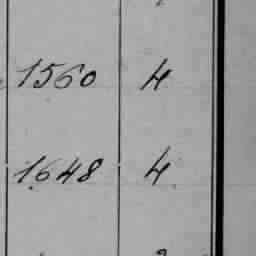 1560 4
1648 4.